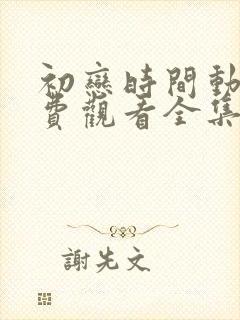 初戀時間動
費觀看全集
謝先文